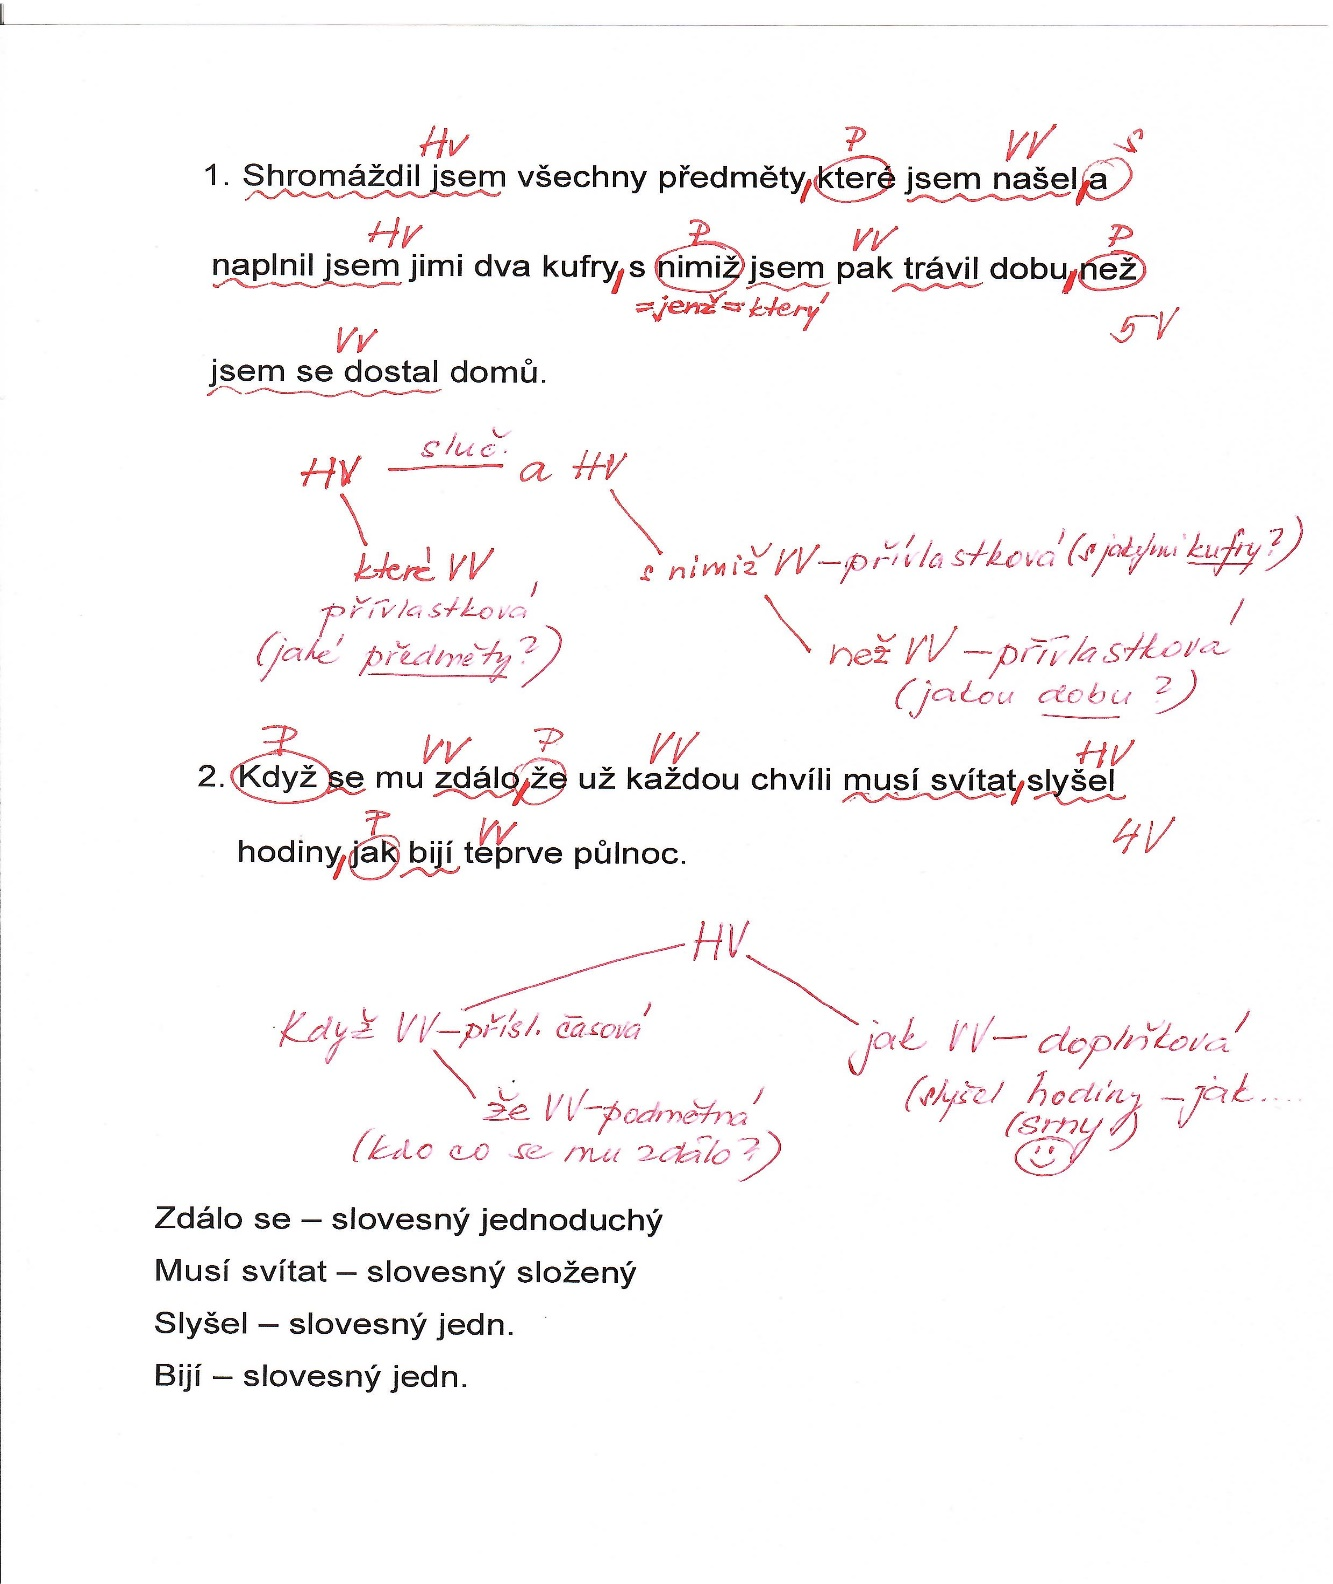 HV P VV S
1. Shromáždil jsem všechny předměty, které jsem našel, a
HV P VV P
naplnil jsem jimi dva kufry, s nimiž jsem pak trávil dobu, než
=jenž=který
5V
VV
jsem se dostal domů.
sluč.
HV a HV
které VV s nimiž VV – přívlastková (s jakými kufry?)
přívlastková
(jaké předměty?) než VV – přívlastková
(jakou dobu?)
P VV P VV HV
2. Když se mu zdálo, že už každou chvíli musí svítat, slyšel
4V
P VV
hodiny, jak bijí teprve půlnoc.
HV
Když VV – přísl. časová jak VV – doplňková
(slyšel hodiny – jak....
že VV – podmětná (srny!)
(kdo co se mu zdálo?)
Zdálo se – slovesný jednoduchý
Musí svítat – slovesný složený
Slyšel – slovesný jedn.
Bijí – slovesný jedn.